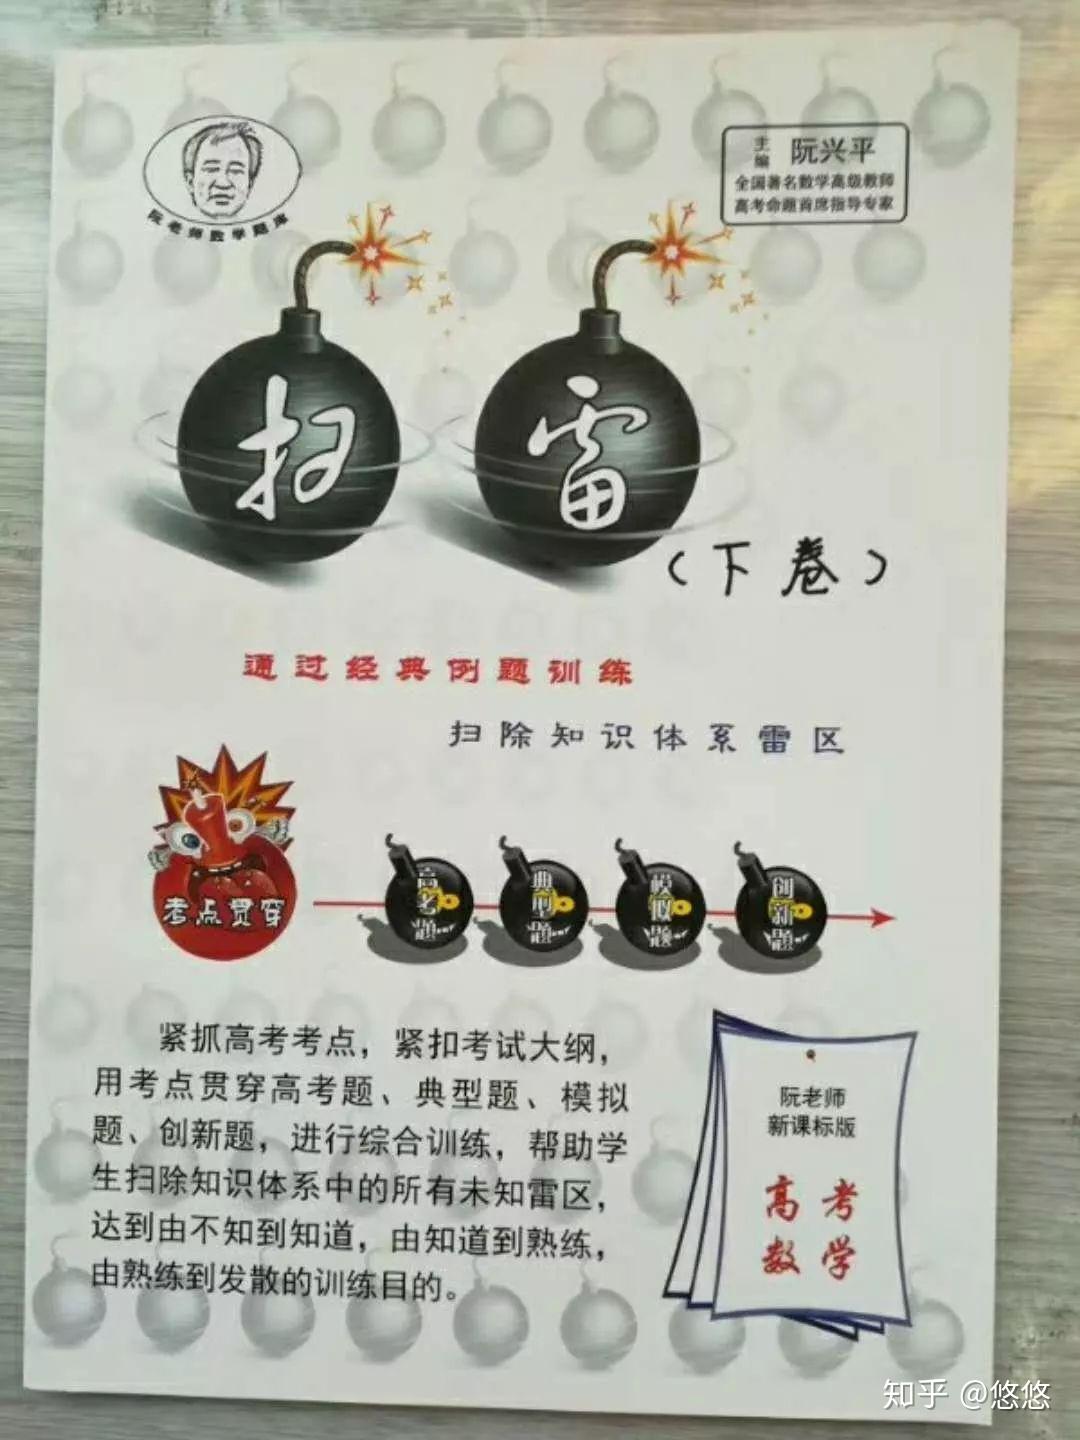 阮老师数学题库
主编 阮兴平
全国著名数学高级教师
高考命题首席指导专家
扫雷
（下卷）
通过经典例题训练
扫除知识体系雷区
考点贯穿
高考题
典型题
模拟题
创新题
紧抓高考考点，紧扣考试大纲，
用考点贯穿高考题、典型题、模拟
题、创新题，进行综合训练，帮助学
生扫除知识体系中的所有未知雷区，
达到由不知到知道，由知道到熟练，
由熟练到发散的训练目的。
阮老师
新课标版
高考
数学
知乎 @悠悠